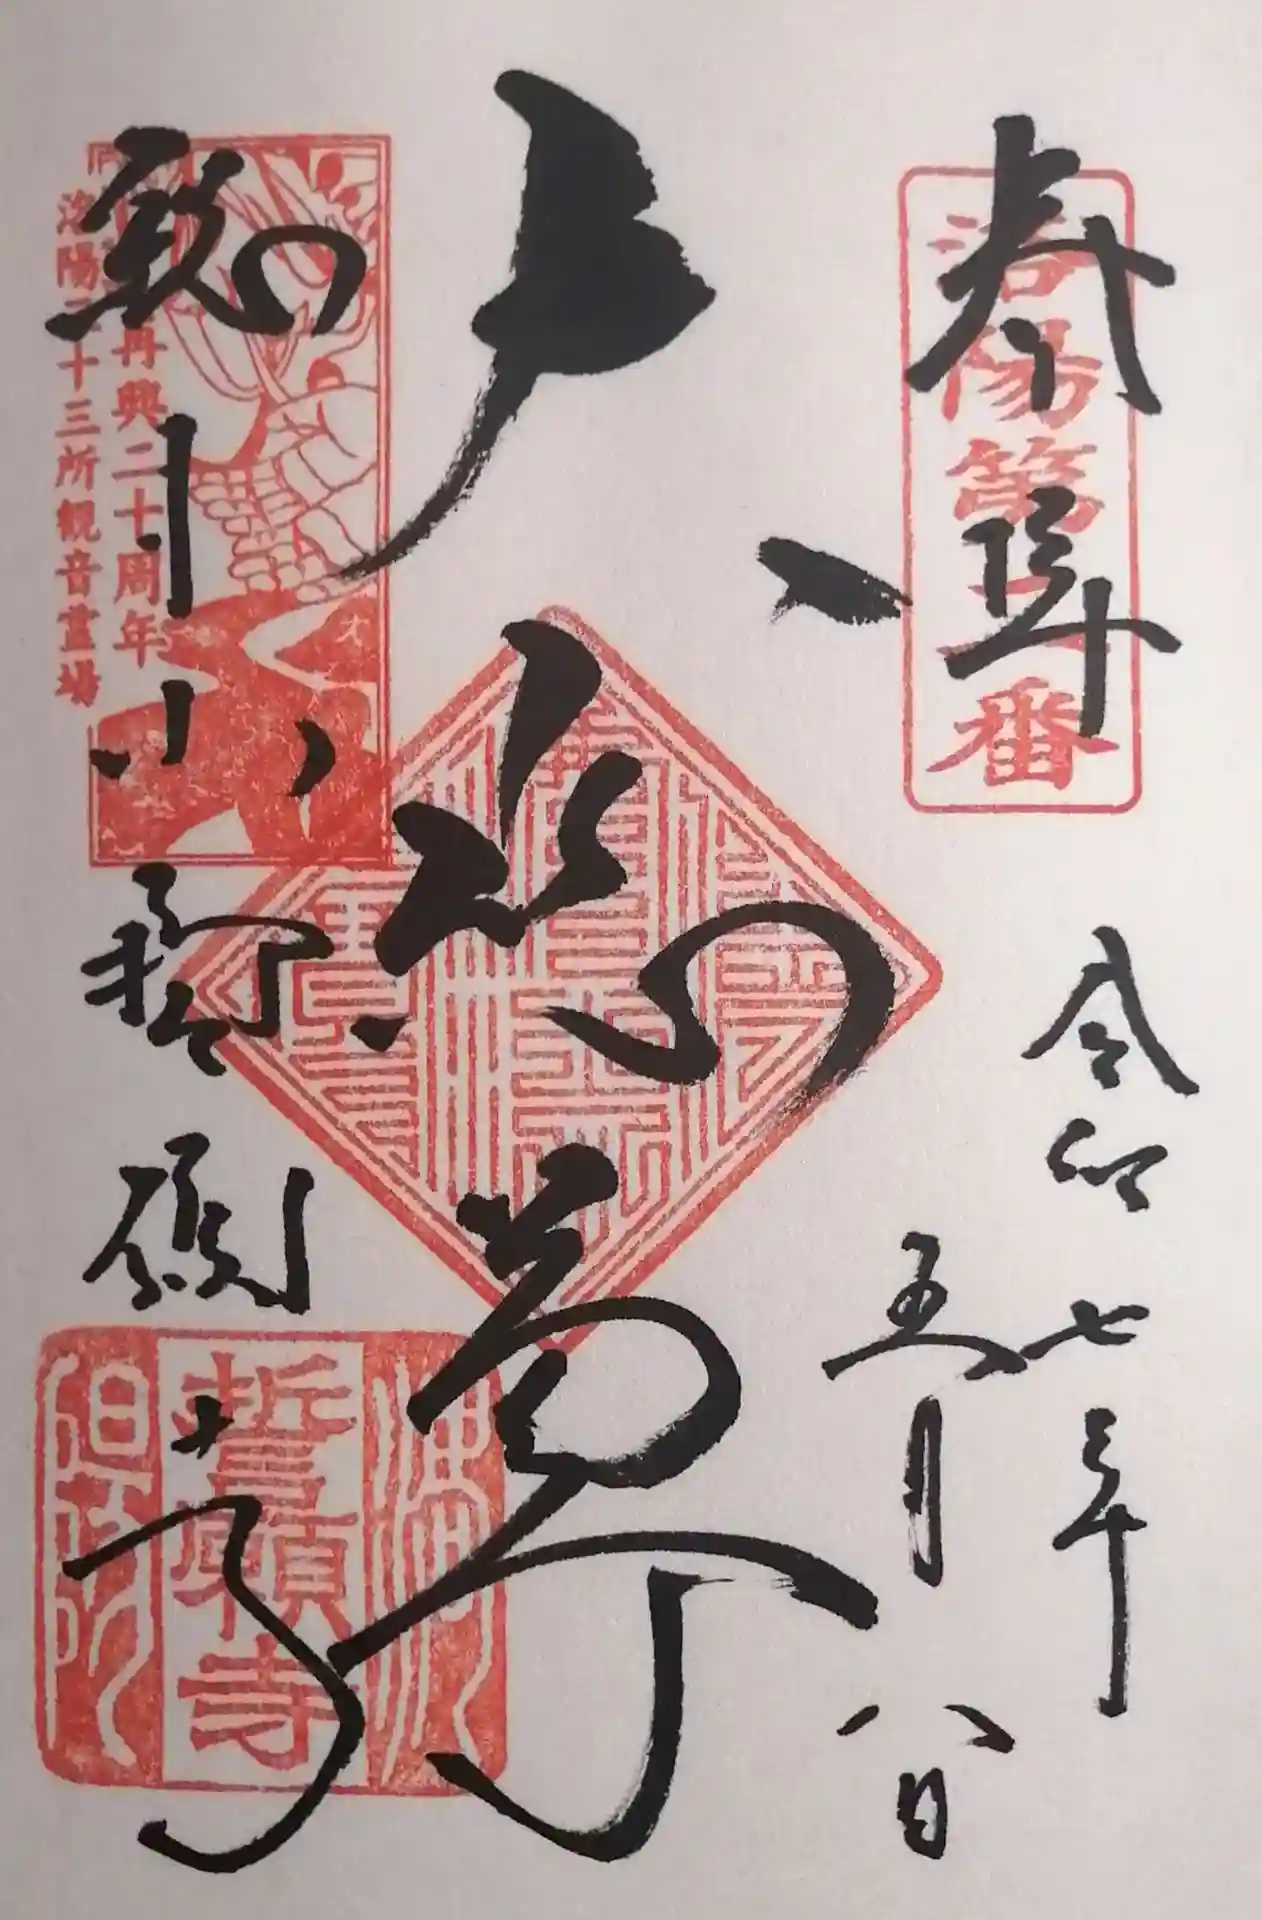 奉拝
洛陽第二番
令和七年
五月八日
大悲尊
総本山誓願寺
再興二十周年
洛陽三十三所観音霊場
誓願寺